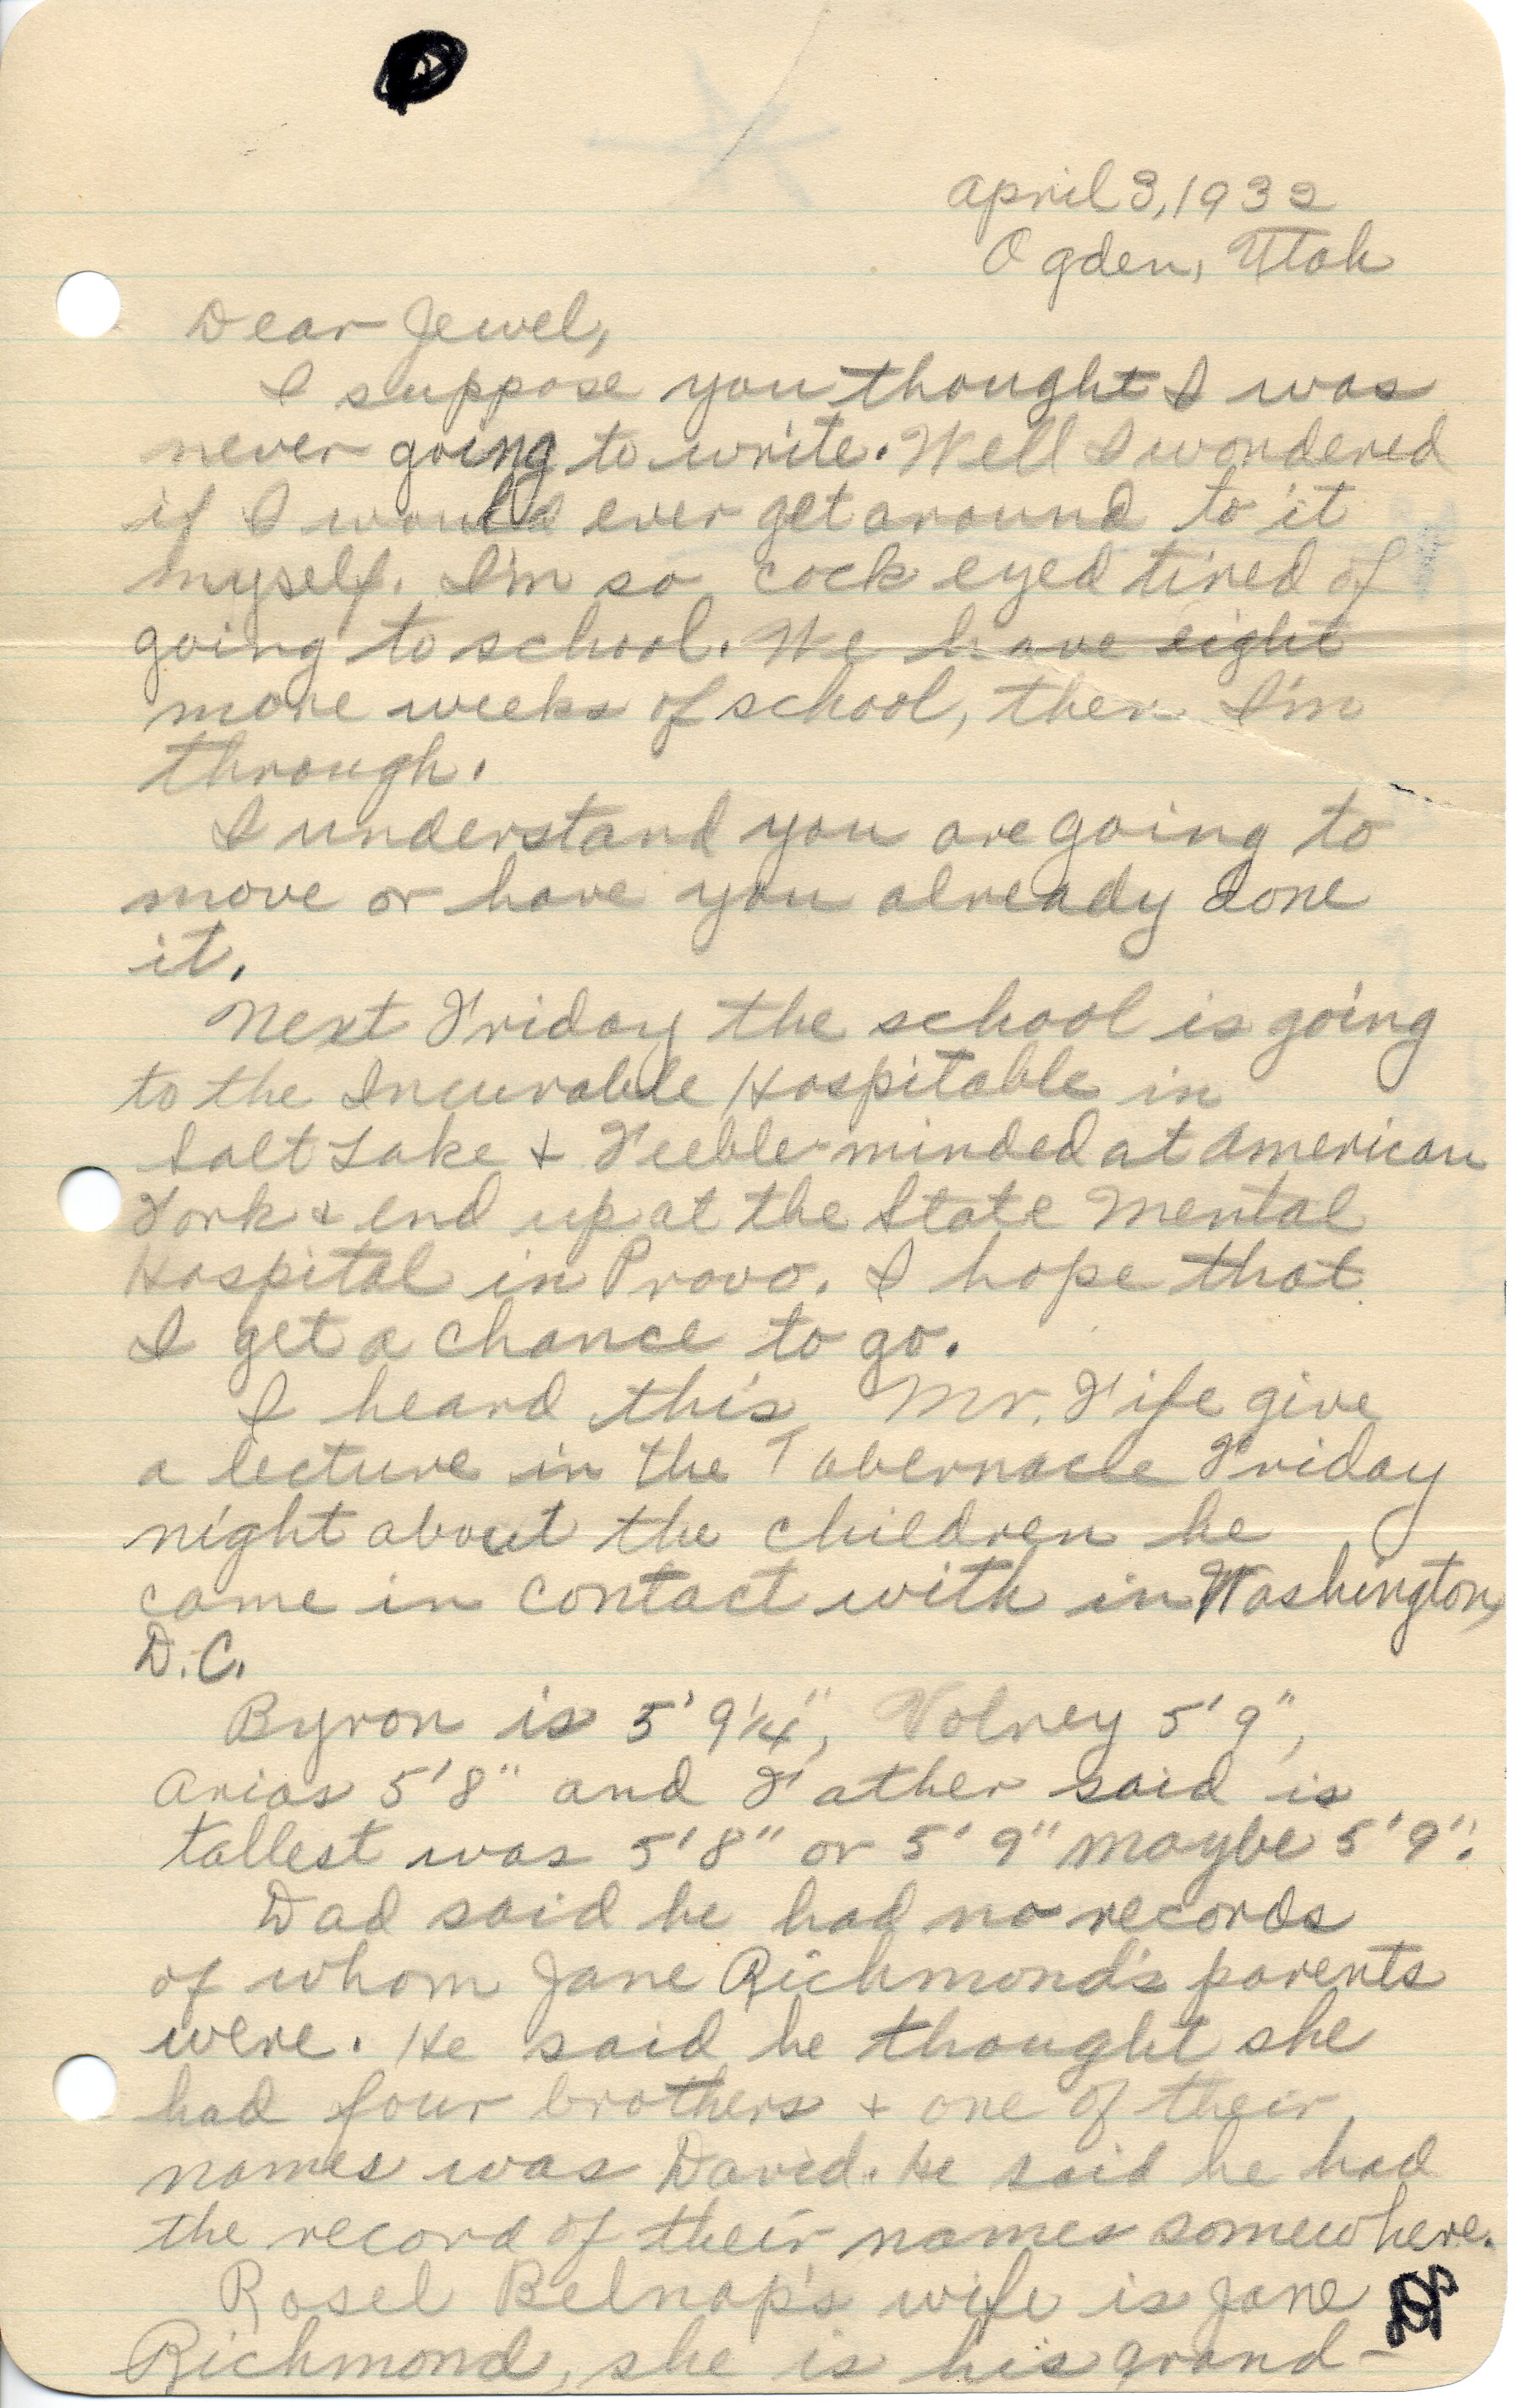 April 3, 1932
Ogden, Utah
Dear Jewel,
I suppose you thought I was
never going to write. Well I wondered
if I would ever get around to it
myself. I'm so cock eyed tired of
going to school. We have eight
more weeks of school, then I'm
through.
I understand you are going to
move or have you already done
it.
Next Friday the school is going
to the Incurable Hospitable in
Salt Lake + Feeble-minded at American
Fork + end up at the State Mental
Hospital in Provo. I hope that
I get a chance to go.
I heard this Mr. Fife give
a lecture in the Tabernacle Friday
night about the children he
came in contact with in Washington,
D.C.
Byron is 5' 9 1/4", Volney 5' 9",
Arias 5' 8" and Father said is
tallest was 5' 8" or 5' 9" maybe 5' 9".
Dad said he had no records
of whom Jane Richmond's parents
were. He said he thought she
had four brothers + one of their
names was David. He said he had
the record of their names somewhere.
Rosel Belnap's wife is Jane
Richmond, she is his grand-